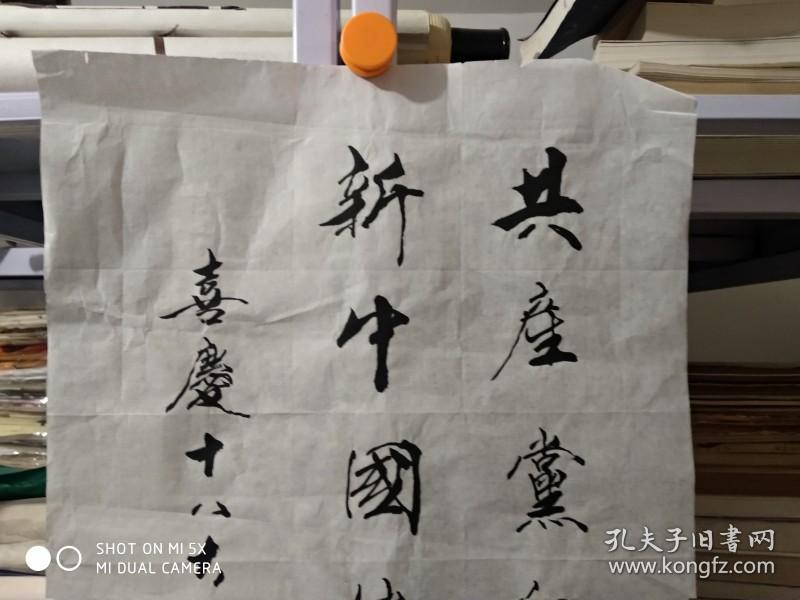 共產黨
新中國
喜慶十八大
SHOT ON MI 5X
MI DUAL CAMERA
孔夫子旧書网
www.kongfz.com